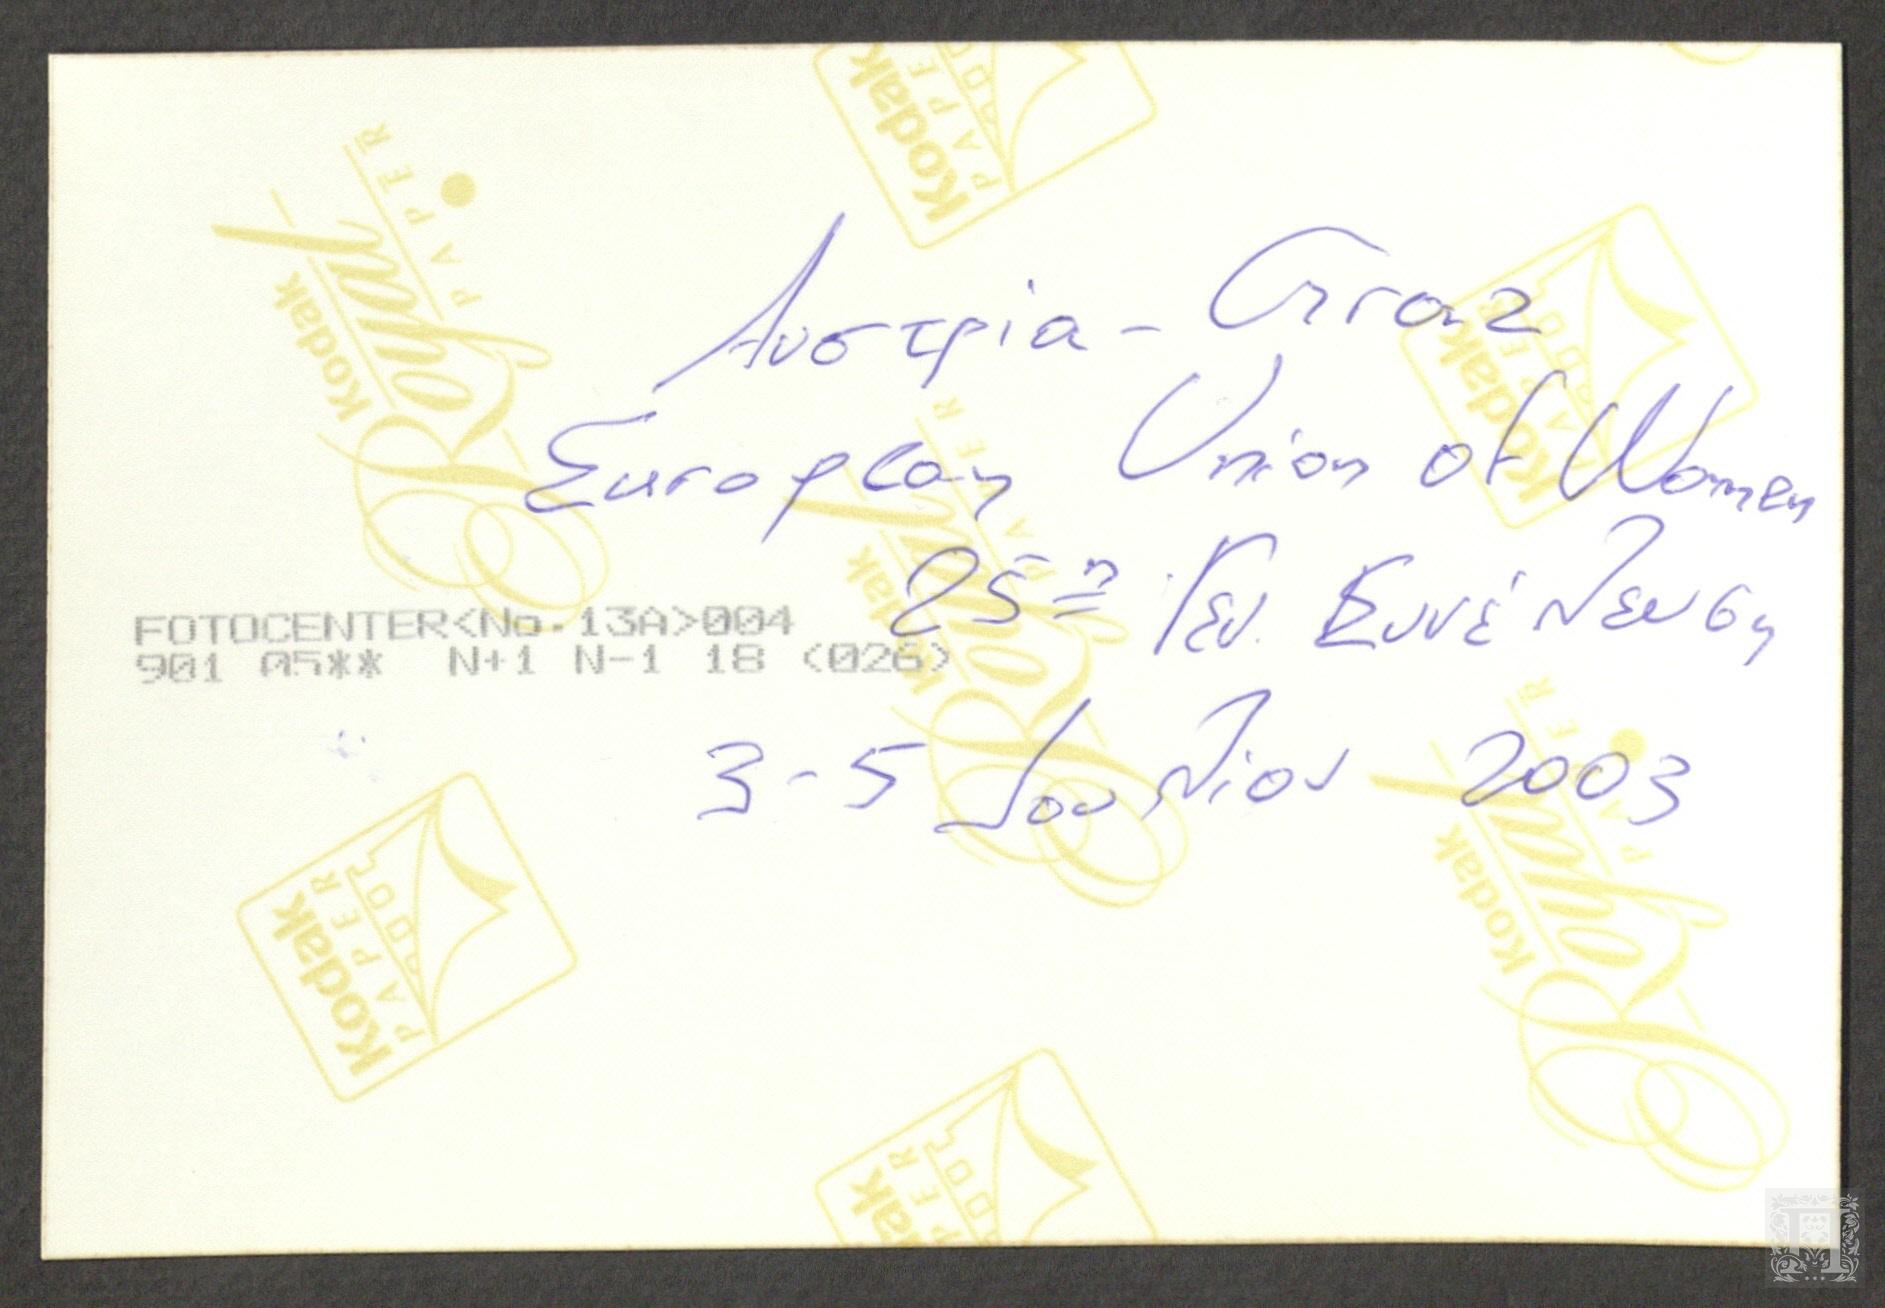 Αυστρία - Graz
European Union of Women
25η Γεν. Συνέλευση
3-5 Ιουλίου 2003
FOTOCENTER<No.13A>004
901 05** N+1 N-1 18 (026)
Kodak Royal PAPER
Kodak PAPER
Kodak PAPER
Kodak Royal PAPER
Kodak Royal PAPER
Kodak PAPER
Kodak PAPER